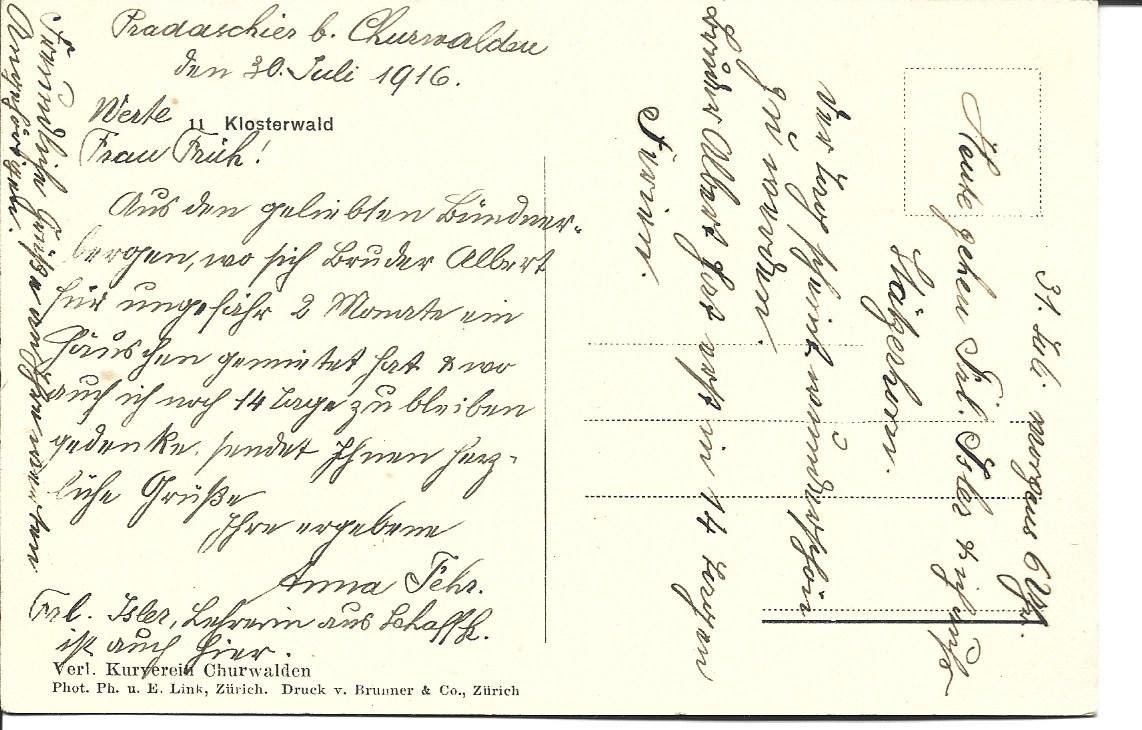 Pradaschier b. Churwalden
den 30. Juli 1916.
Werte
11 Klosterwald
Frau Früh!
Aus den geliebten Bündner-
bergen, wo sich Bruder Albert
für ungefähr 2 Monate ein
Häuschen gemietet hat & wo
auch ich noch 14 Tage zu bleiben
gedenke, sendet Ihnen herz-
liche Grüße
Ihre ergebene
Anna Fehr.
Frl. Isler, Lehrerin aus Schaffh.
ist auch hier.
Verl. Kurverein Churwalden
Phot. Ph. u. E. Link, Zürich. Druck v. Brunner & Co., Zürich
Freundliche Grüße an Ihre werten
Angehörigen.
31. Juli morgens 6 Uhr.
Heute gehen Frl. Isler & ich aufs
Stätzerhorn.
Der Tag scheint wunderschön
zu werden.
Bruder Albert hat erst in 14 Tagen
Ferien.